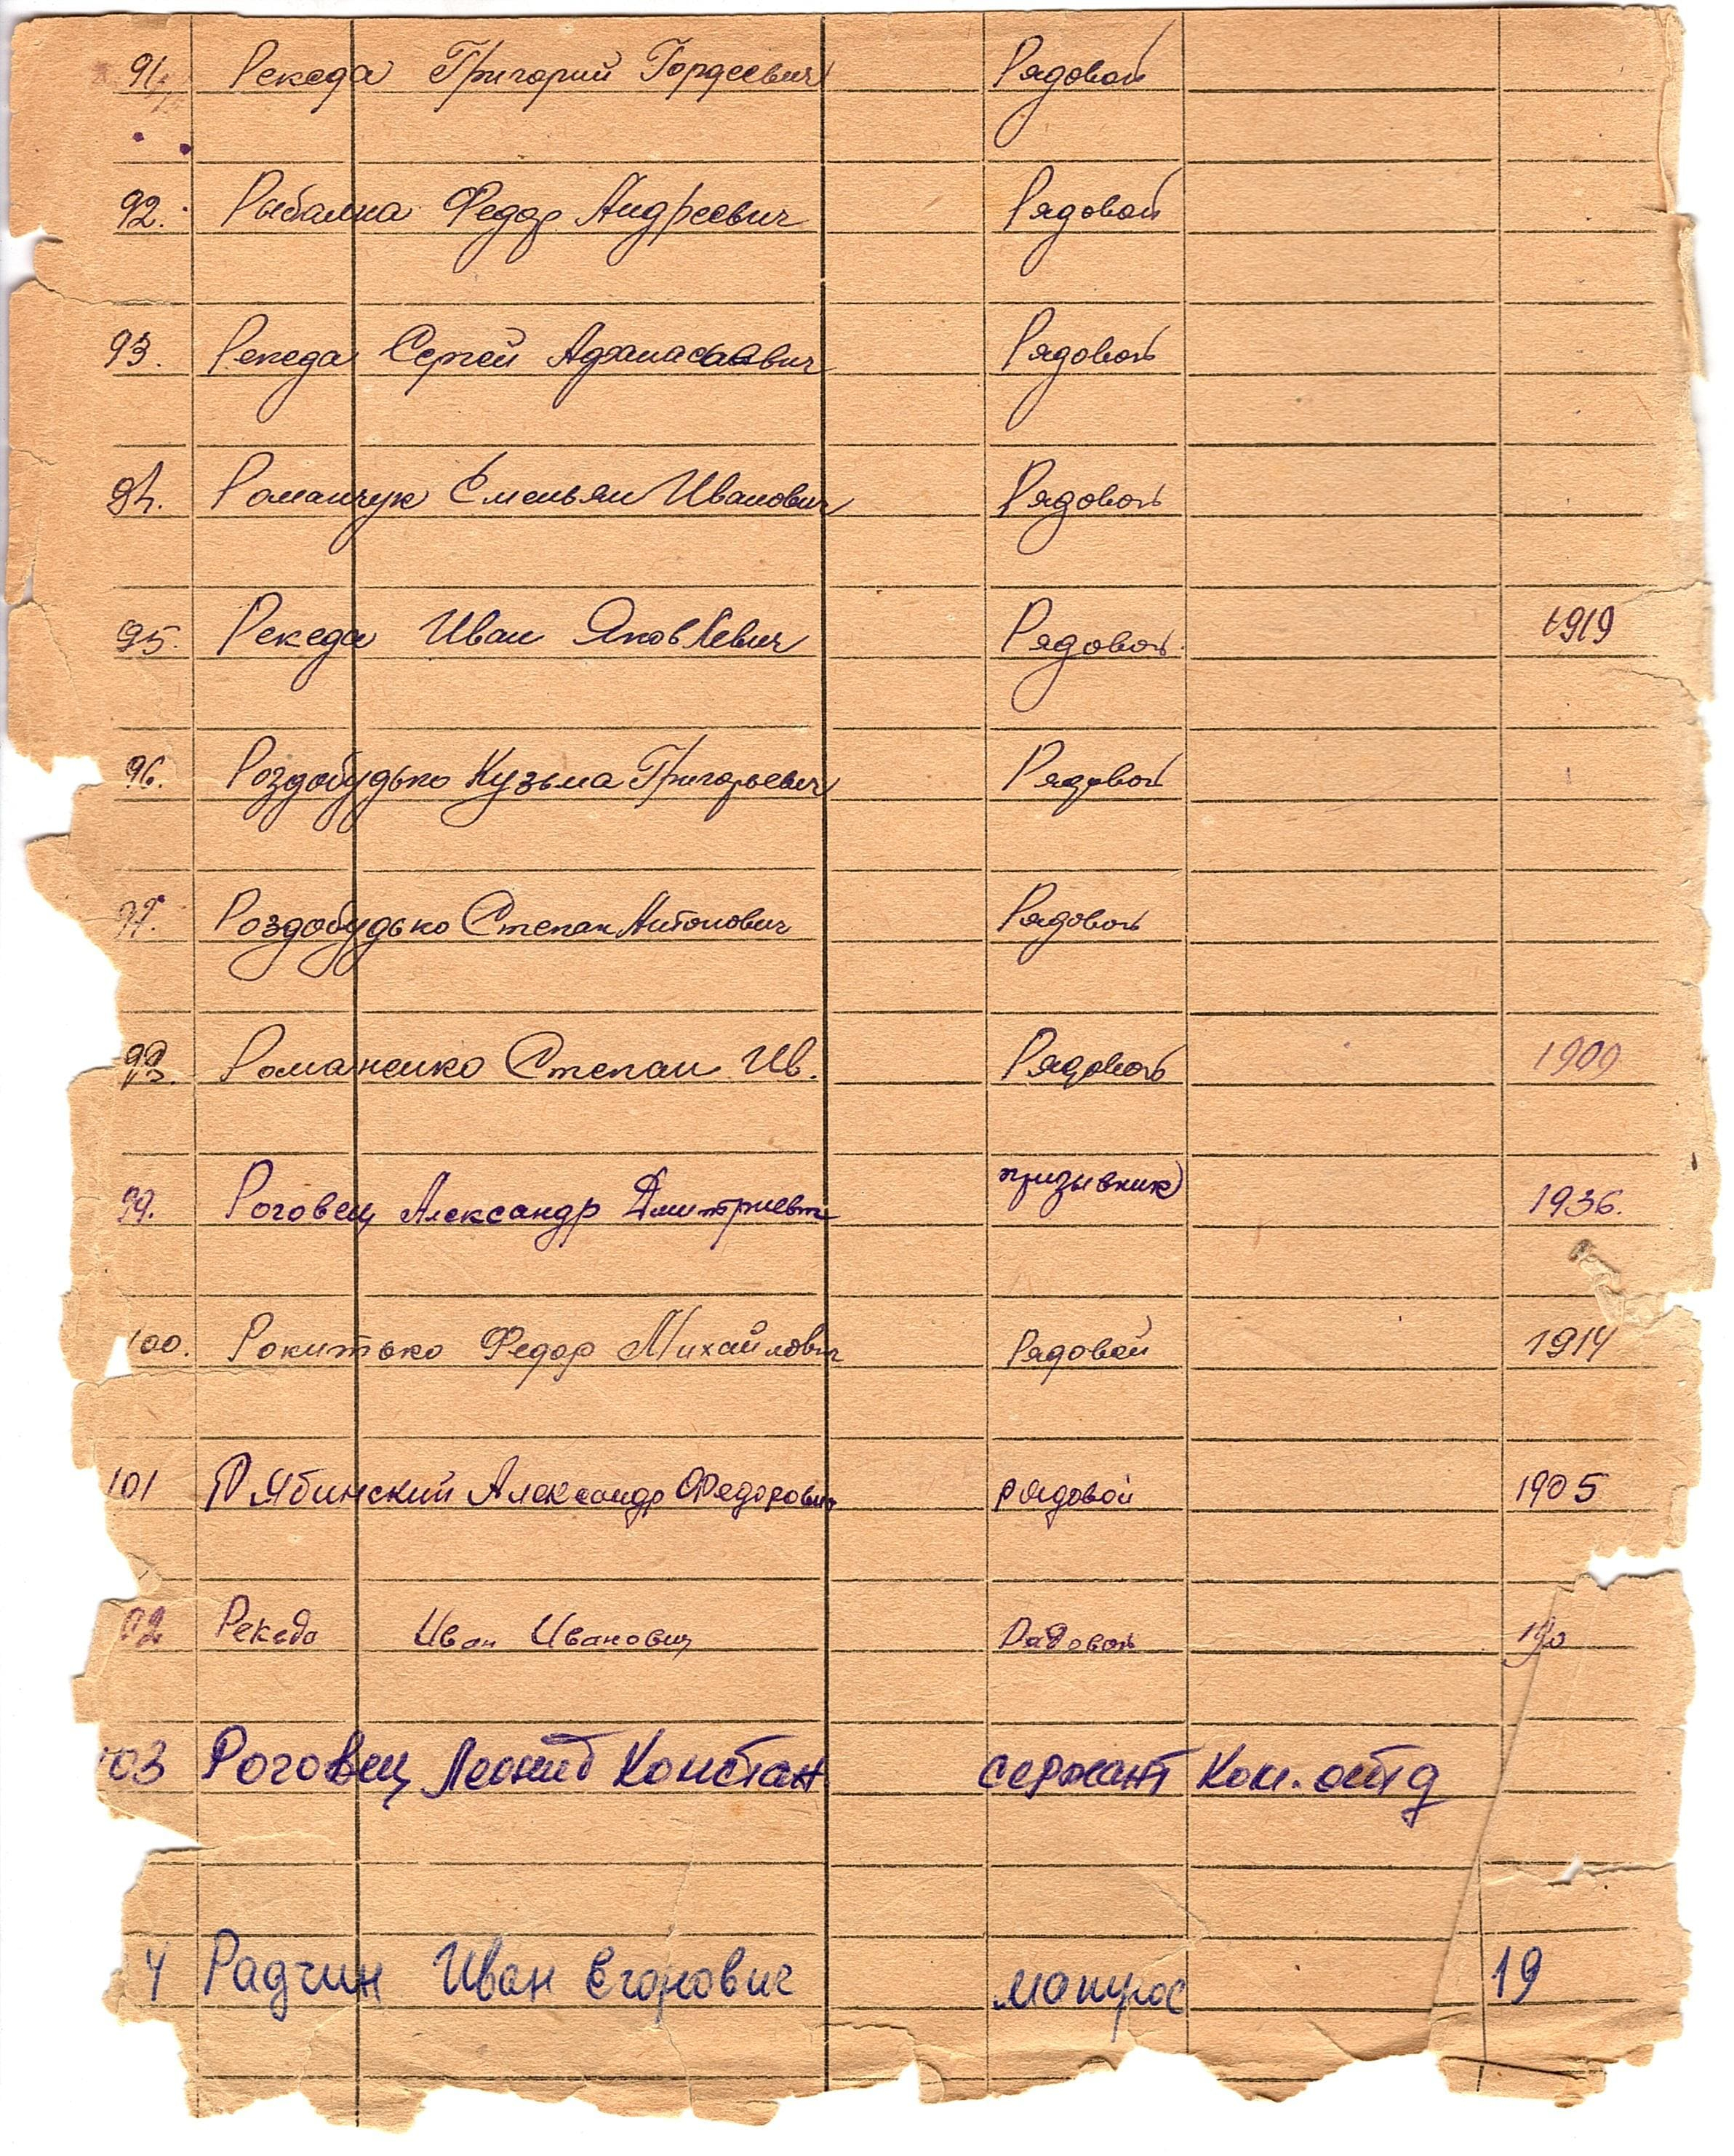 91. Рекеда Григорий Гордеевич Рядовой
92. Рыбалка Федор Андреевич Рядовой
93. Рекеда Сергей Афанасьевич Рядовой
94. Романчук Емельян Иванович Рядовой
95. Рекеда Иван Яковлевич Рядовой 1919
96. Роздобудько Кузьма Григорьевич Рядовой
97. Роздобудько Степан Антонович Рядовой
98. Романенко Степан Ив. Рядовой 1909
99. Роговец Александр Дмитриевич призывник 1936.
100. Рокитько Федор Михайлович Рядовой 1914
101 Рябинский Александр Федорович рядовой 1905
02 Рекеда Иван Иванович Рядовой
03 Роговец Леонид Констан сержант Ком. отд
4 Радчин Иван Егорович матрос 19